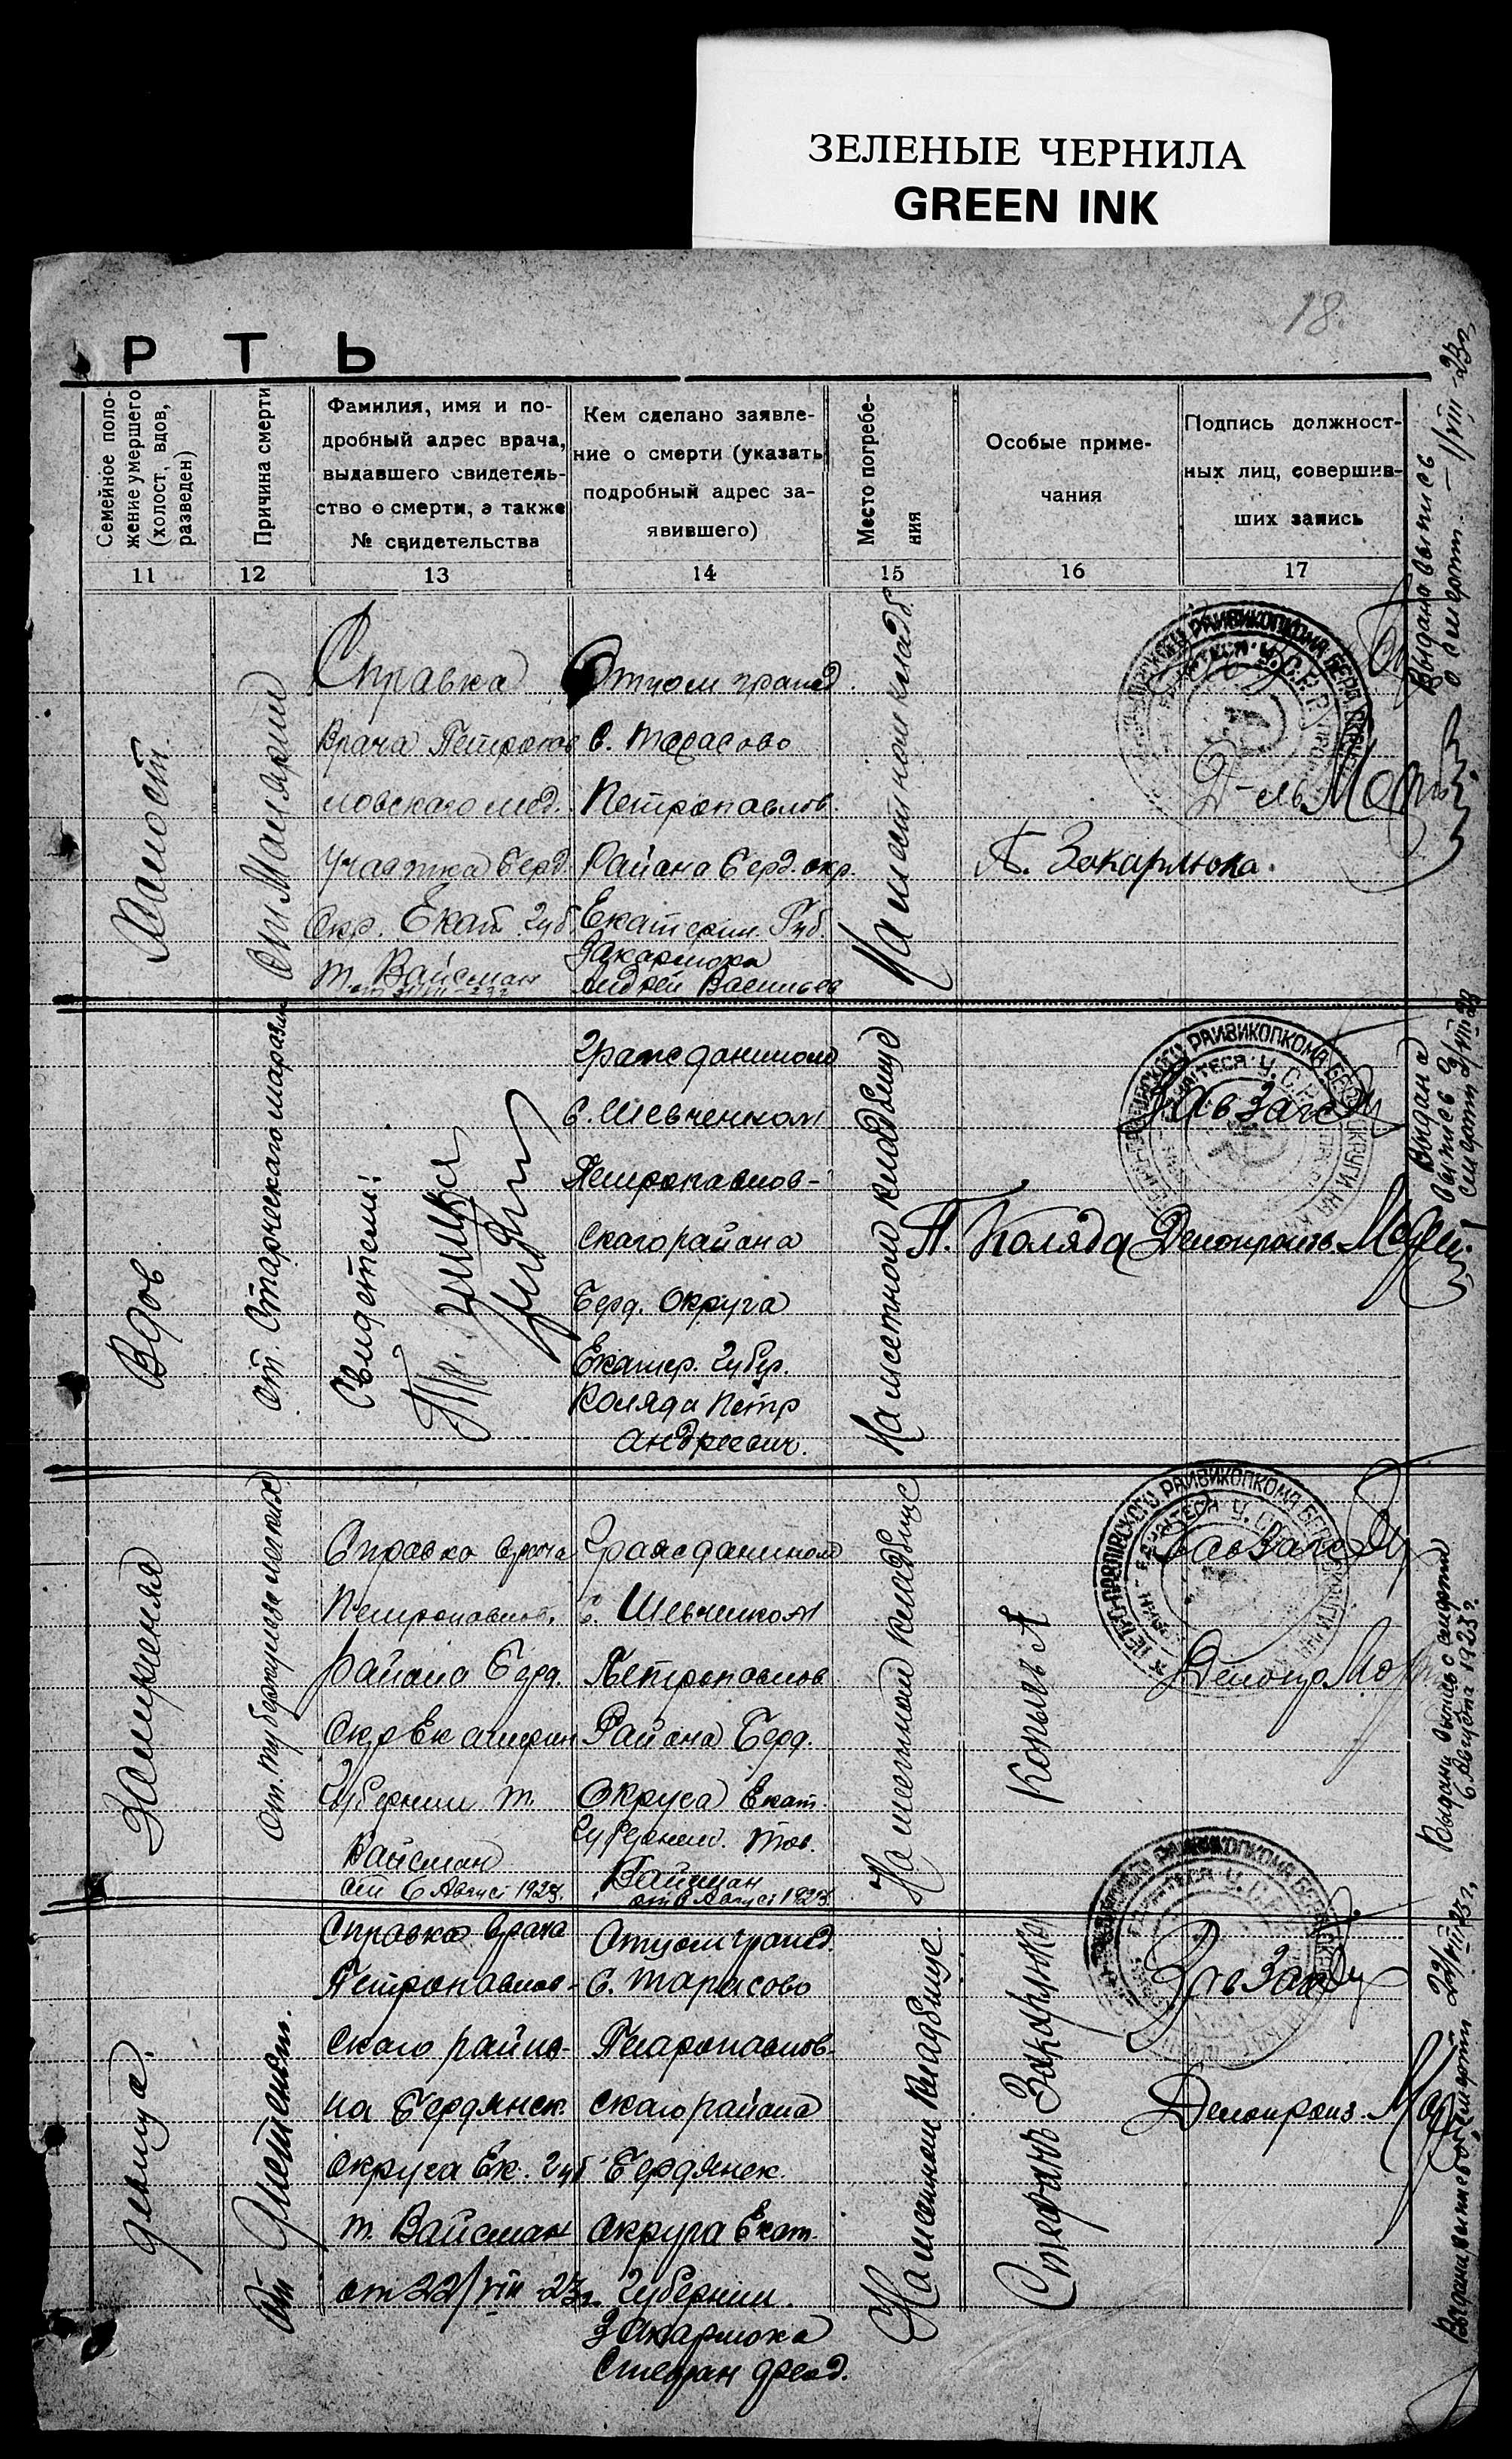 ЗЕЛЕНЫЕ ЧЕРНИЛА
GREEN INK
18.
Р Т Ь
Семейное поло-
жение умершего
(холост, вдов,
разведен)
Причина смерти
Фамилия, имя и по-
дробный адрес врача,
выдавшего свидетель-
ство о смерти, а также
№ свидетельства
Кем сделано заявле-
ние о смерти (указать
подробный адрес за-
явившего)
Место погребе-
ния
Особые приме-
чания
Подпись должност-
ных лиц, совершив-
ших запись
11
12
13
14
15
16
17
Холост
От Малярии
Справка
Врача Петропав
ловского мед.
Участка Берд.
Окр. Екат. Губ.
т. Вайсман
Отцом гражд.
с. Тарасово
Петропавлов.
Района Берд. окр.
Екатерин. Губ.
Закарлюка
Андрей Васильев
На местном кладб.
А. Закарлюка.
Выдана выпись
о смерт. — 1/VIII-23г.
Вдов
От. Старческаго маразма
Свидетели:
Гражданином
с. Шевченком
Петропавлов-
скаго района
Берд. Округа
Екатер. Губер.
Коляда Петр
Андреевич.
На местном кладбище
П. Коляда
ЗавЗагс
Делопроизв.
Выдана
выпись о
смерти 2/VIII 23
Замужняя
От. туберкулеза легких
Справка врача
Петропавлов.
Района Берд.
Окр Екатерин
Губернии т.
Вайсман
от 6 Август 1923.
Гражданином
с. Шевченком
Петропавлов
Района Берд.
Округа Екат.
Губернии. Тов.
Вайсман
от 6 Август 1923.
На местном кладбище
ЗавЗагс
Делопр
Выдана выпись о смерти
6 Августа 1923г.
девица.
От
Справка врача
Петропавлов-
скаго райо-
на Бердянск.
округа Ек. Губ
т. Вайсман
от 22/VIII-23г.
Отцом гражд.
с. Тарасово
Петропавлов-
скаго района
Бердянск.
округа Екат.
Губернии.
Закарлюка
Стефан
На местном кладбище.
Стефан Закарлюка
ЗавЗагс
Делопроиз.
Выдана выпись о смерти 22/VIII 23г.